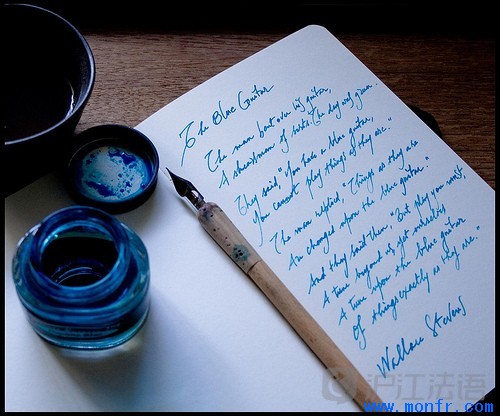 The Blue Guitar
The man bent over his guitar,
A shearsman of sorts. The day was green.
They said "You have a blue guitar,
You cannot play things as they are."
The man replied, "Things as they are
Are changed upon the blue guitar."
And they said then, "But play you must,
A tune beyond us, yet ourselves
A tune upon the blue guitar
Of things exactly as they are."
Wallace Stevens
沪江法语
www.monfr.com